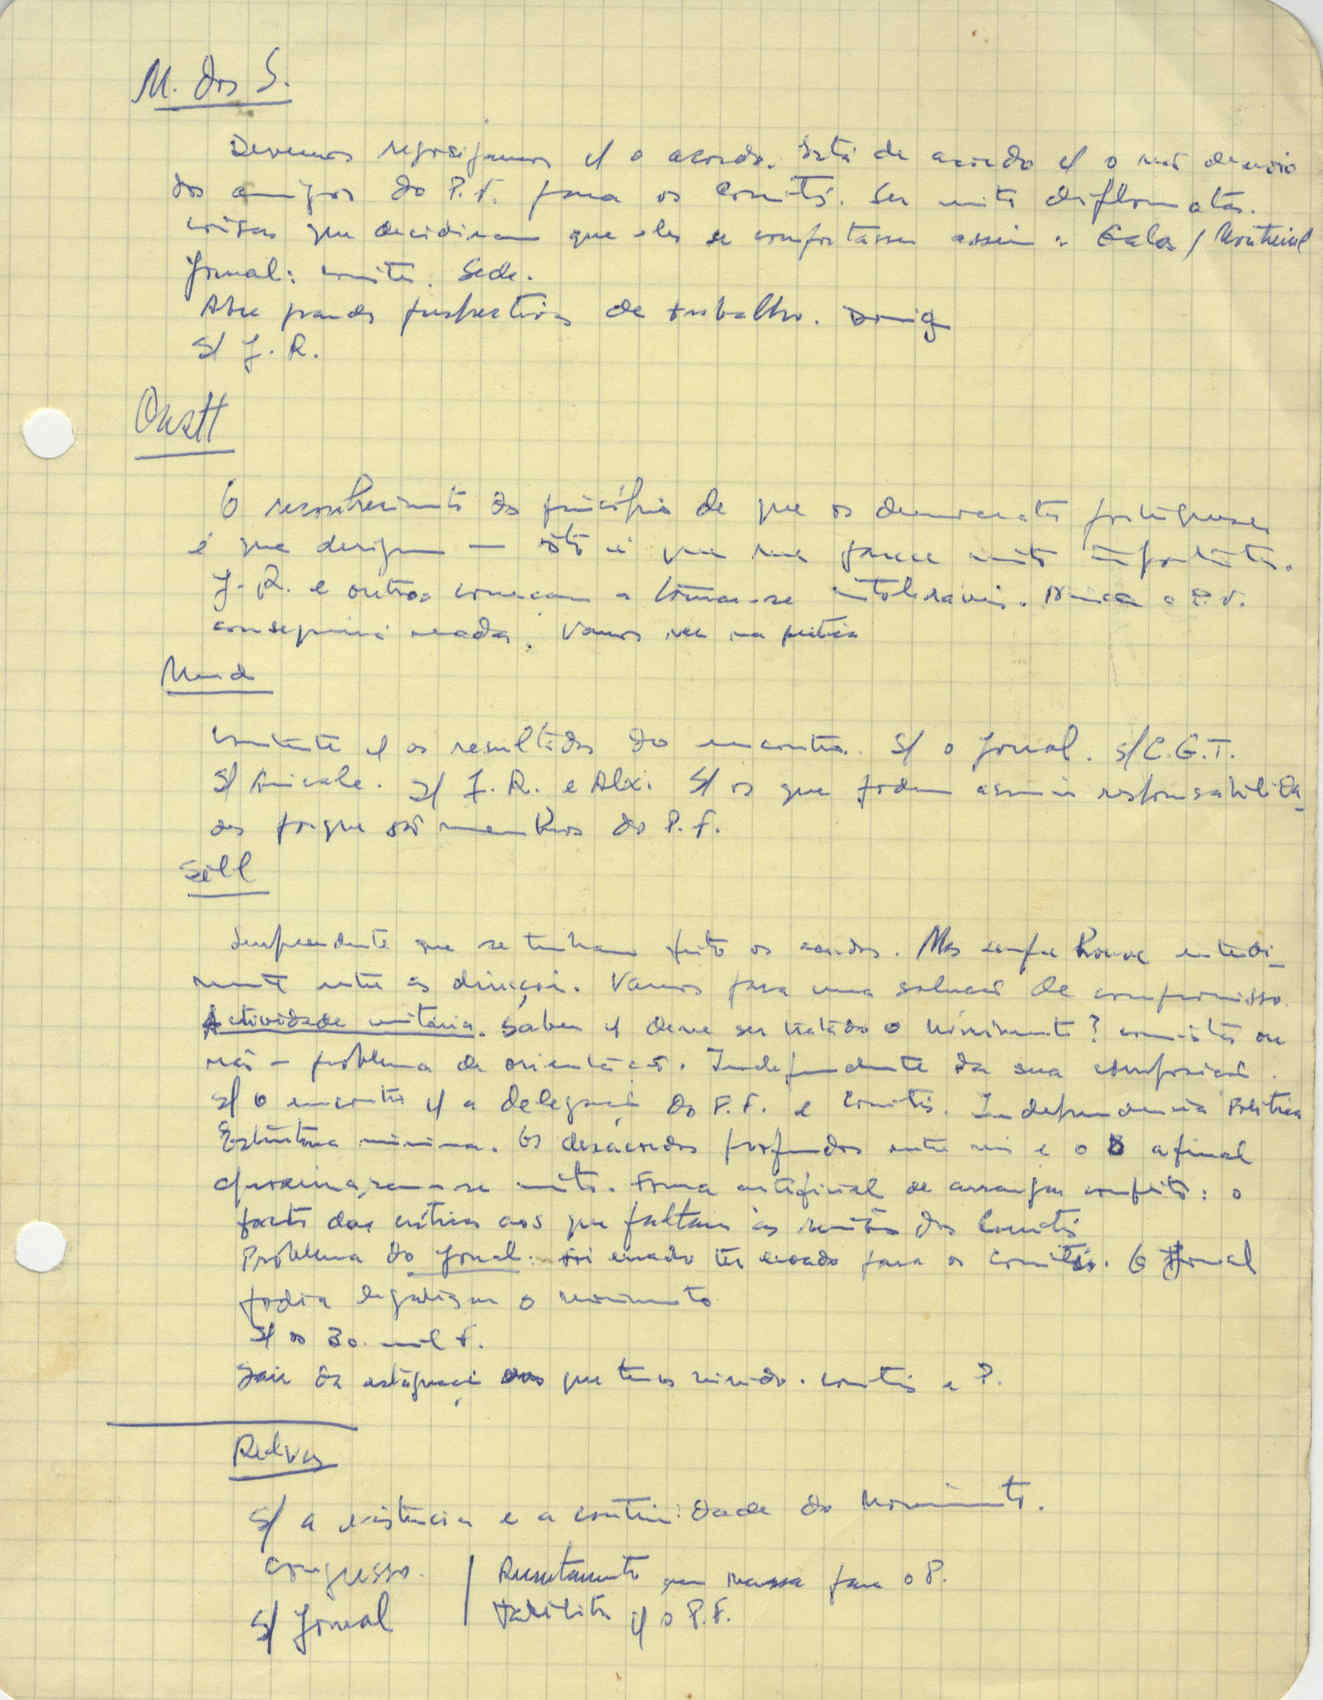 M. dos S.
Devemos regosijarmos c/ o acordo. Está de acordo c/ o
dos amigos do P.F. para os Comités. Ser mito diplomatas.
coisas que decidiram que eles se comportassem assim
Jornal: comité. Sede.
Abre grandes perspectivas de trabalho.
S/ J. R.
O reconhecimento do princípio de que os democratas portugueses
é que dirigem — isto é que me parece mito importante.
J. R. e outros começam a tornar-se intoleráveis. Nunca o P.F.
conseguirá nada. Vamos ver na prática
Contente c/ os resultados do encontro. S/ o Jornal. S/ C.G.T.
S/ Amicale. S/ J. R. e Alx. S/ os que podem assumir responsabilida-
des porque são membros do P.F.
Sill
Surpreendente que se tenham feito os acordos. Mas sempre houve entendi-
mento entre as direcções. Vamos para uma solução de compromisso.
Actividade unitária. Saber c/ deve ser tratado o Movimento? comités ou
não — problema de orientação. Independente da sua composição.
S/ o encontro c/ a delegação do P.F. e Comités. Independencia Politica
Estrutura minima. Os desacordos profundos entre nós e o B afinal
aproximaram-se mito. Forma artificial de arranjar conflito: o
facto das criticas aos que faltam às reuniões dos Comités
Problema do Jornal. Foi errado ter enviado para os Comités. O Jornal
podia legalizar o movimento
S/ os 30 mil F.
Sair da estagnação que temos vivido. Comités e P.
Relvas
S/ a existencia e a continuidade do Movimento.
Congresso. | Recrutamento em massa para o P.
S/ Jornal | c/ o P.F.